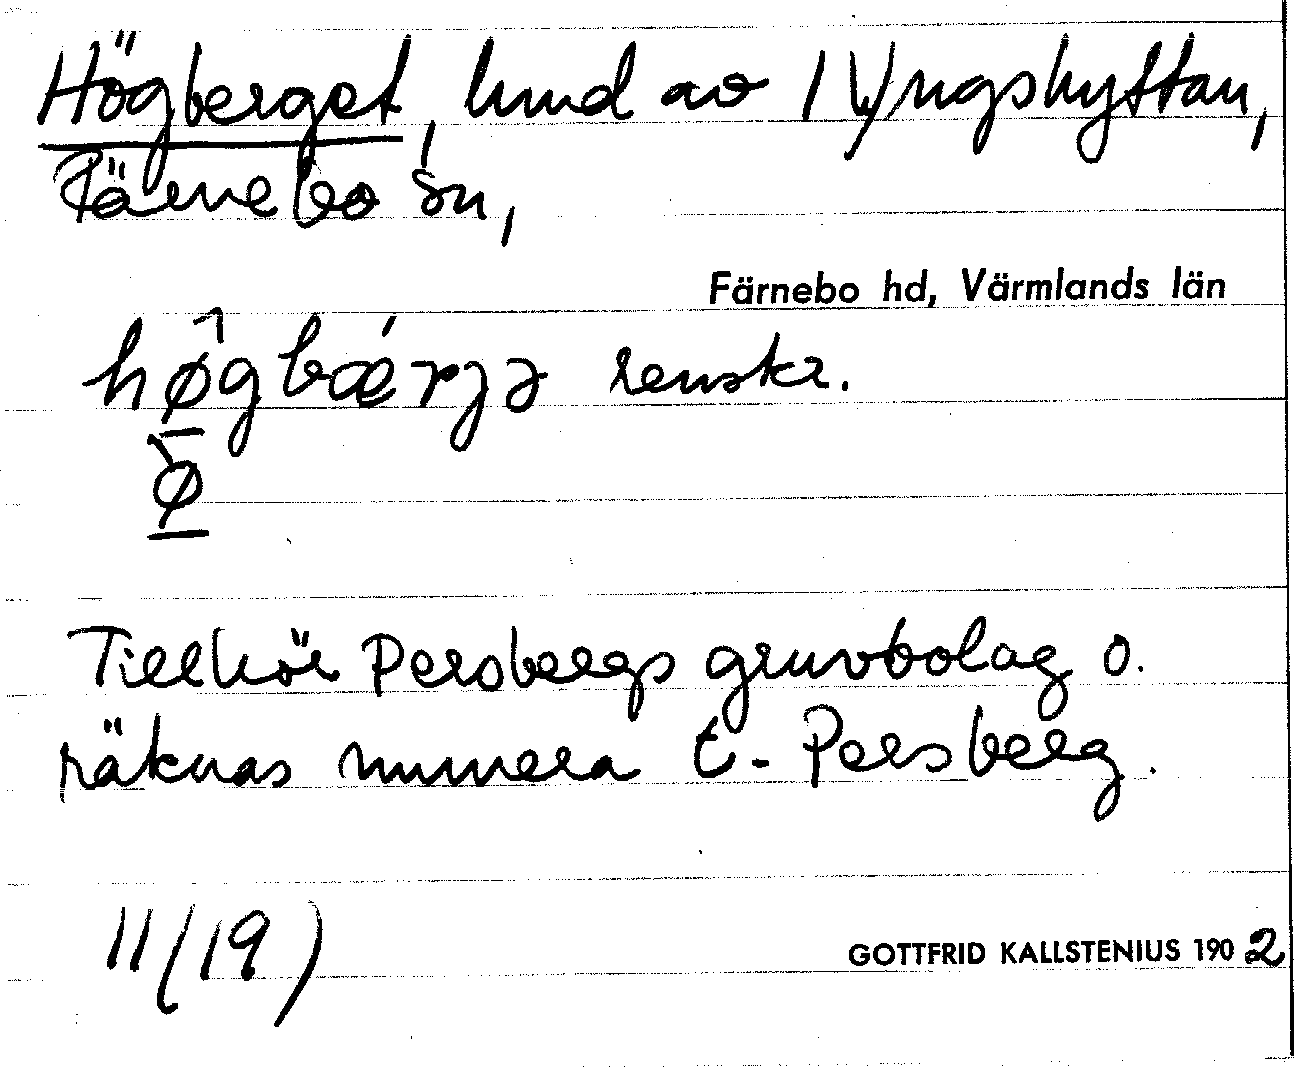 Högberget, hmd av 1 Yngshyttan,
Färnebo sn,
Färnebo hd, Värmlands län
hø̂gbǽrjə renskr.
ø̀
Tillhör Persbergs gruvbolag o.
räknas numera t. Persberg.
11/(19)
GOTTFRID KALLSTENIUS 1902